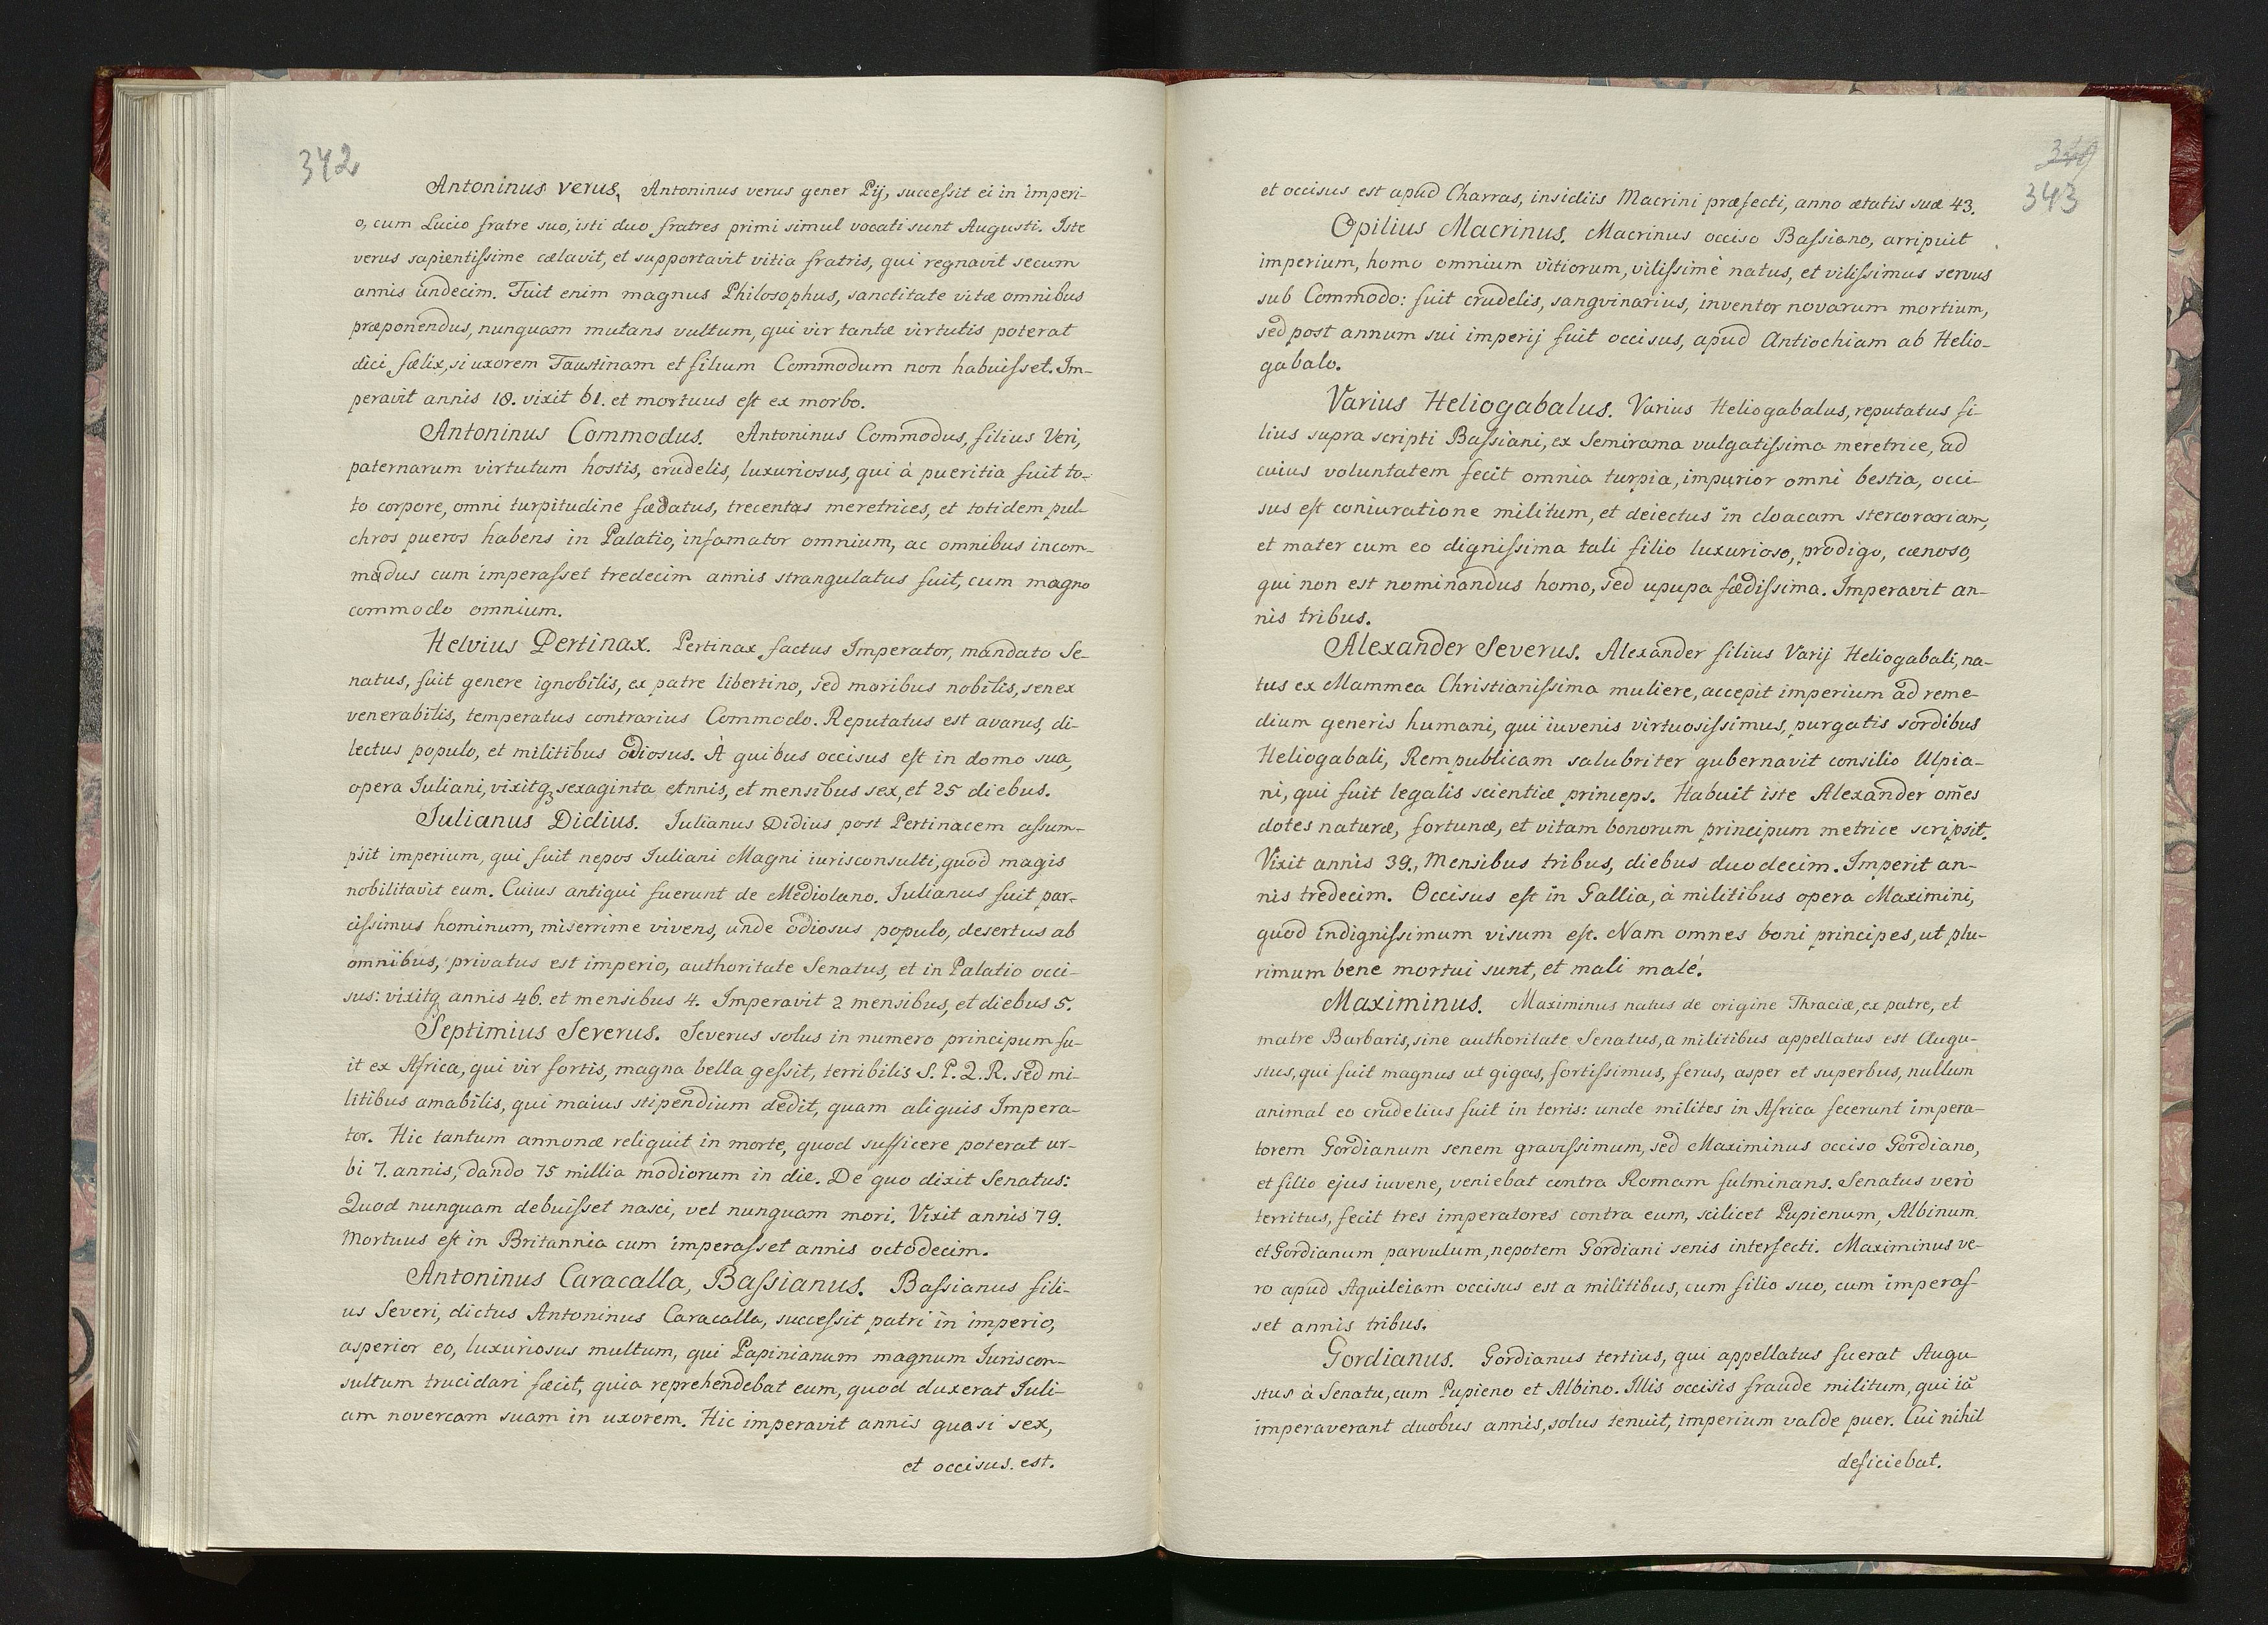 342
Antoninus verus, Antoninus verus gener Pij, successit ei in imperi-
o, cum Lucio fratre suo, isti duo fratres primi simul vocati sunt Augusti. Iste
verus sapientissime cælavit, et supportavit vitia fratris, qui regnavit secum
annis undecim. Fuit enim magnus Philosophus, sanctitate vitæ omnibus
præponendus, nunquam mutans vultum, qui vir tantæ virtutis poterat
dici fælix, si uxorem Faustinam et filium Commodum non habuisset. Im-
peravit annis 18. vixit 61. et mortuus est ex morbo.
Antoninus Commodus. Antoninus Commodus, filius Veri,
paternarum virtutum hostis, crudelis, luxuriosus, qui à pueritia fuit to-
to corpore, omni turpitudine fædatus, trecentas meretrices, et totidem pul-
chros pueros habens in Palatio, infamator omnium, ac omnibus incom-
modus cum imperasset tredecim annis strangulatus fuit, cum magno
commodo omnium.
Helvius Pertinax. Pertinax factus Imperator, mandato Se-
natus, fuit genere ignobilis, ex patre libertino, sed moribus nobilis, senex
venerabilis, temperatus contrarius Commodo. Reputatus est avarus, di-
lectus populo, et militibus odiosus. À quibus occisus est in domo sua,
opera Iuliani, vixitq; sexaginta etnnis, et mensibus sex, et 25 diebus.
Iulianus Didius. Iulianus Didius post Pertinacem assum-
psit imperium, qui fuit nepos Iuliani Magni iurisconsulti, quod magis
nobilitavit eum. Cuius antiqui fuerunt de Mediolano. Iulianus fuit par-
cissimus hominum, miserrime vivens, unde odiosus populo, desertus ab
omnibus, privatus est imperio, authoritate Senatus, et in Palatio occi-
sus: vixitq; annis 46. et mensibus 4. Imperavit 2 mensibus, et diebus 5.
Septimius Severus. Severus solus in numero principum fu-
it ex Africa, qui vir fortis, magna bella gessit, terribilis S. P. Q. R. sed mi-
litibus amabilis, qui maius stipendium dedit, quam aliquis Impera-
tor. Hic tantum annonæ reliquit in morte, quod sufficere poterat ur-
bi 7. annis, dando 75 millia modiorum in die. De quo dixit Senatus:
Quod nunquam debuisset nasci, vel nunquam mori. Vixit annis 79.
Mortuus est in Britannia cum imperasset annis octodecim.
Antoninus Caracalla, Bassianus. Bassianus fili-
us Severi, dictus Antoninus Caracalla, successit patri in imperio,
asperior eo, luxuriosus multum, qui Papinianum magnum Iuriscon-
sultum trucidari fæcit, quia reprehendebat eum, quod duxerat Iuli-
am novercam suam in uxorem. Hic imperavit annis quasi sex,
et occisus. est.
343
et occisus est apud Charras, insidiis Macrini præfecti, anno ætatis suæ 43.
Opilius Macrinus. Macrinus occiso Bassiano, arripuit
imperium, homo omnium vitiorum, vilissimè natus, et vilissimus servus
sub Commodo: fuit crudelis, sangvinarius, inventor novarum mortium,
sed post annum sui imperij fuit occisus, apud Antiochiam ab Helio-
gabalo.
Varius Heliogabalus. Varius Heliogabalus, reputatus fi-
lius supra scripti Bassiani, ex Semirama vulgatissima meretrice, ad
cuius voluntatem fecit omnia turpia, impurior omni bestia, occi-
sus est coniuratione militum, et deiectus in cloacam stercorariam,
et mater cum eo dignissima tali filio luxurioso, prodigo, cænoso,
qui non est nominandus homo, sed upupa fædissima. Imperavit an-
nis tribus.
Alexander Severus. Alexander filius Varij Heliogabali, na-
tus ex Mammea Christianissima muliere, accepit imperium ad reme-
dium generis humani, qui iuvenis virtuosissimus, purgatis sordibus
Heliogabali, Rempublicam salubriter gubernavit consilio Ulpia-
ni, qui fuit legalis scientiæ princeps. Habuit iste Alexander om̃es
dotes naturæ, fortunæ, et vitam bonorum principum metrice scripsit.
Vixit annis 39., Mensibus tribus, diebus duodecim. Imperit an-
nis tredecim. Occisus est in Gallia, à militibus opera Maximini,
quod indignissimum visum est. Nam omnes boni principes, ut plu-
rimum bene mortui sunt, et mali malé.
Maximinus. Maximinus natus de origine Thraciæ, ex patre, et
matre Barbaris, sine authoritate Senatus, a militibus appellatus est Augu-
stus, qui fuit magnus ut gigas, fortissimus, ferus, asper et superbus, nullum
animal eo crudelius fuit in terris: unde milites in Africa fecerunt impera-
torem Gordianum senem gravissimum, sed Maximinus occiso Gordiano,
et filio ejus iuvene, veniebat contra Romam fulminans. Senatus verò
territus, fecit tres imperatores contra eum, scilicet Pupienum, Albinum
et Gordianum parvulum, nepotem Gordiani senis interfecti. Maximinus ve-
ro apud Aquileiam occisus est a militibus, cum filio suo, cum imperas-
set annis tribus.
Gordianus. Gordianus tertius, qui appellatus fuerat Augu-
stus à Senatu, cum Pupieno et Albino. Illis occisis fraude militum, qui iã
imperaverant duobus annis, solus tenuit, imperium valde puer. Cui nihil
deficiebat.